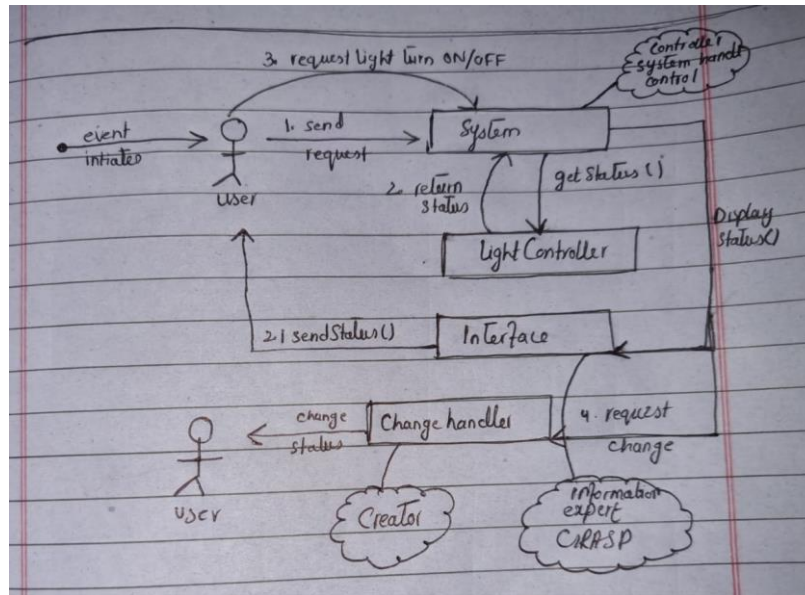 3. request Light Turn ON/OFF
Controller
system handle
control
event
intiates
1. send
request
System
user
2. return
status
getStatus()
Display
status()
Light Controller
2.1 sendStatus()
Interface
change
status
Change handler
4. request
change
user
Creator
information
expert
GRASP